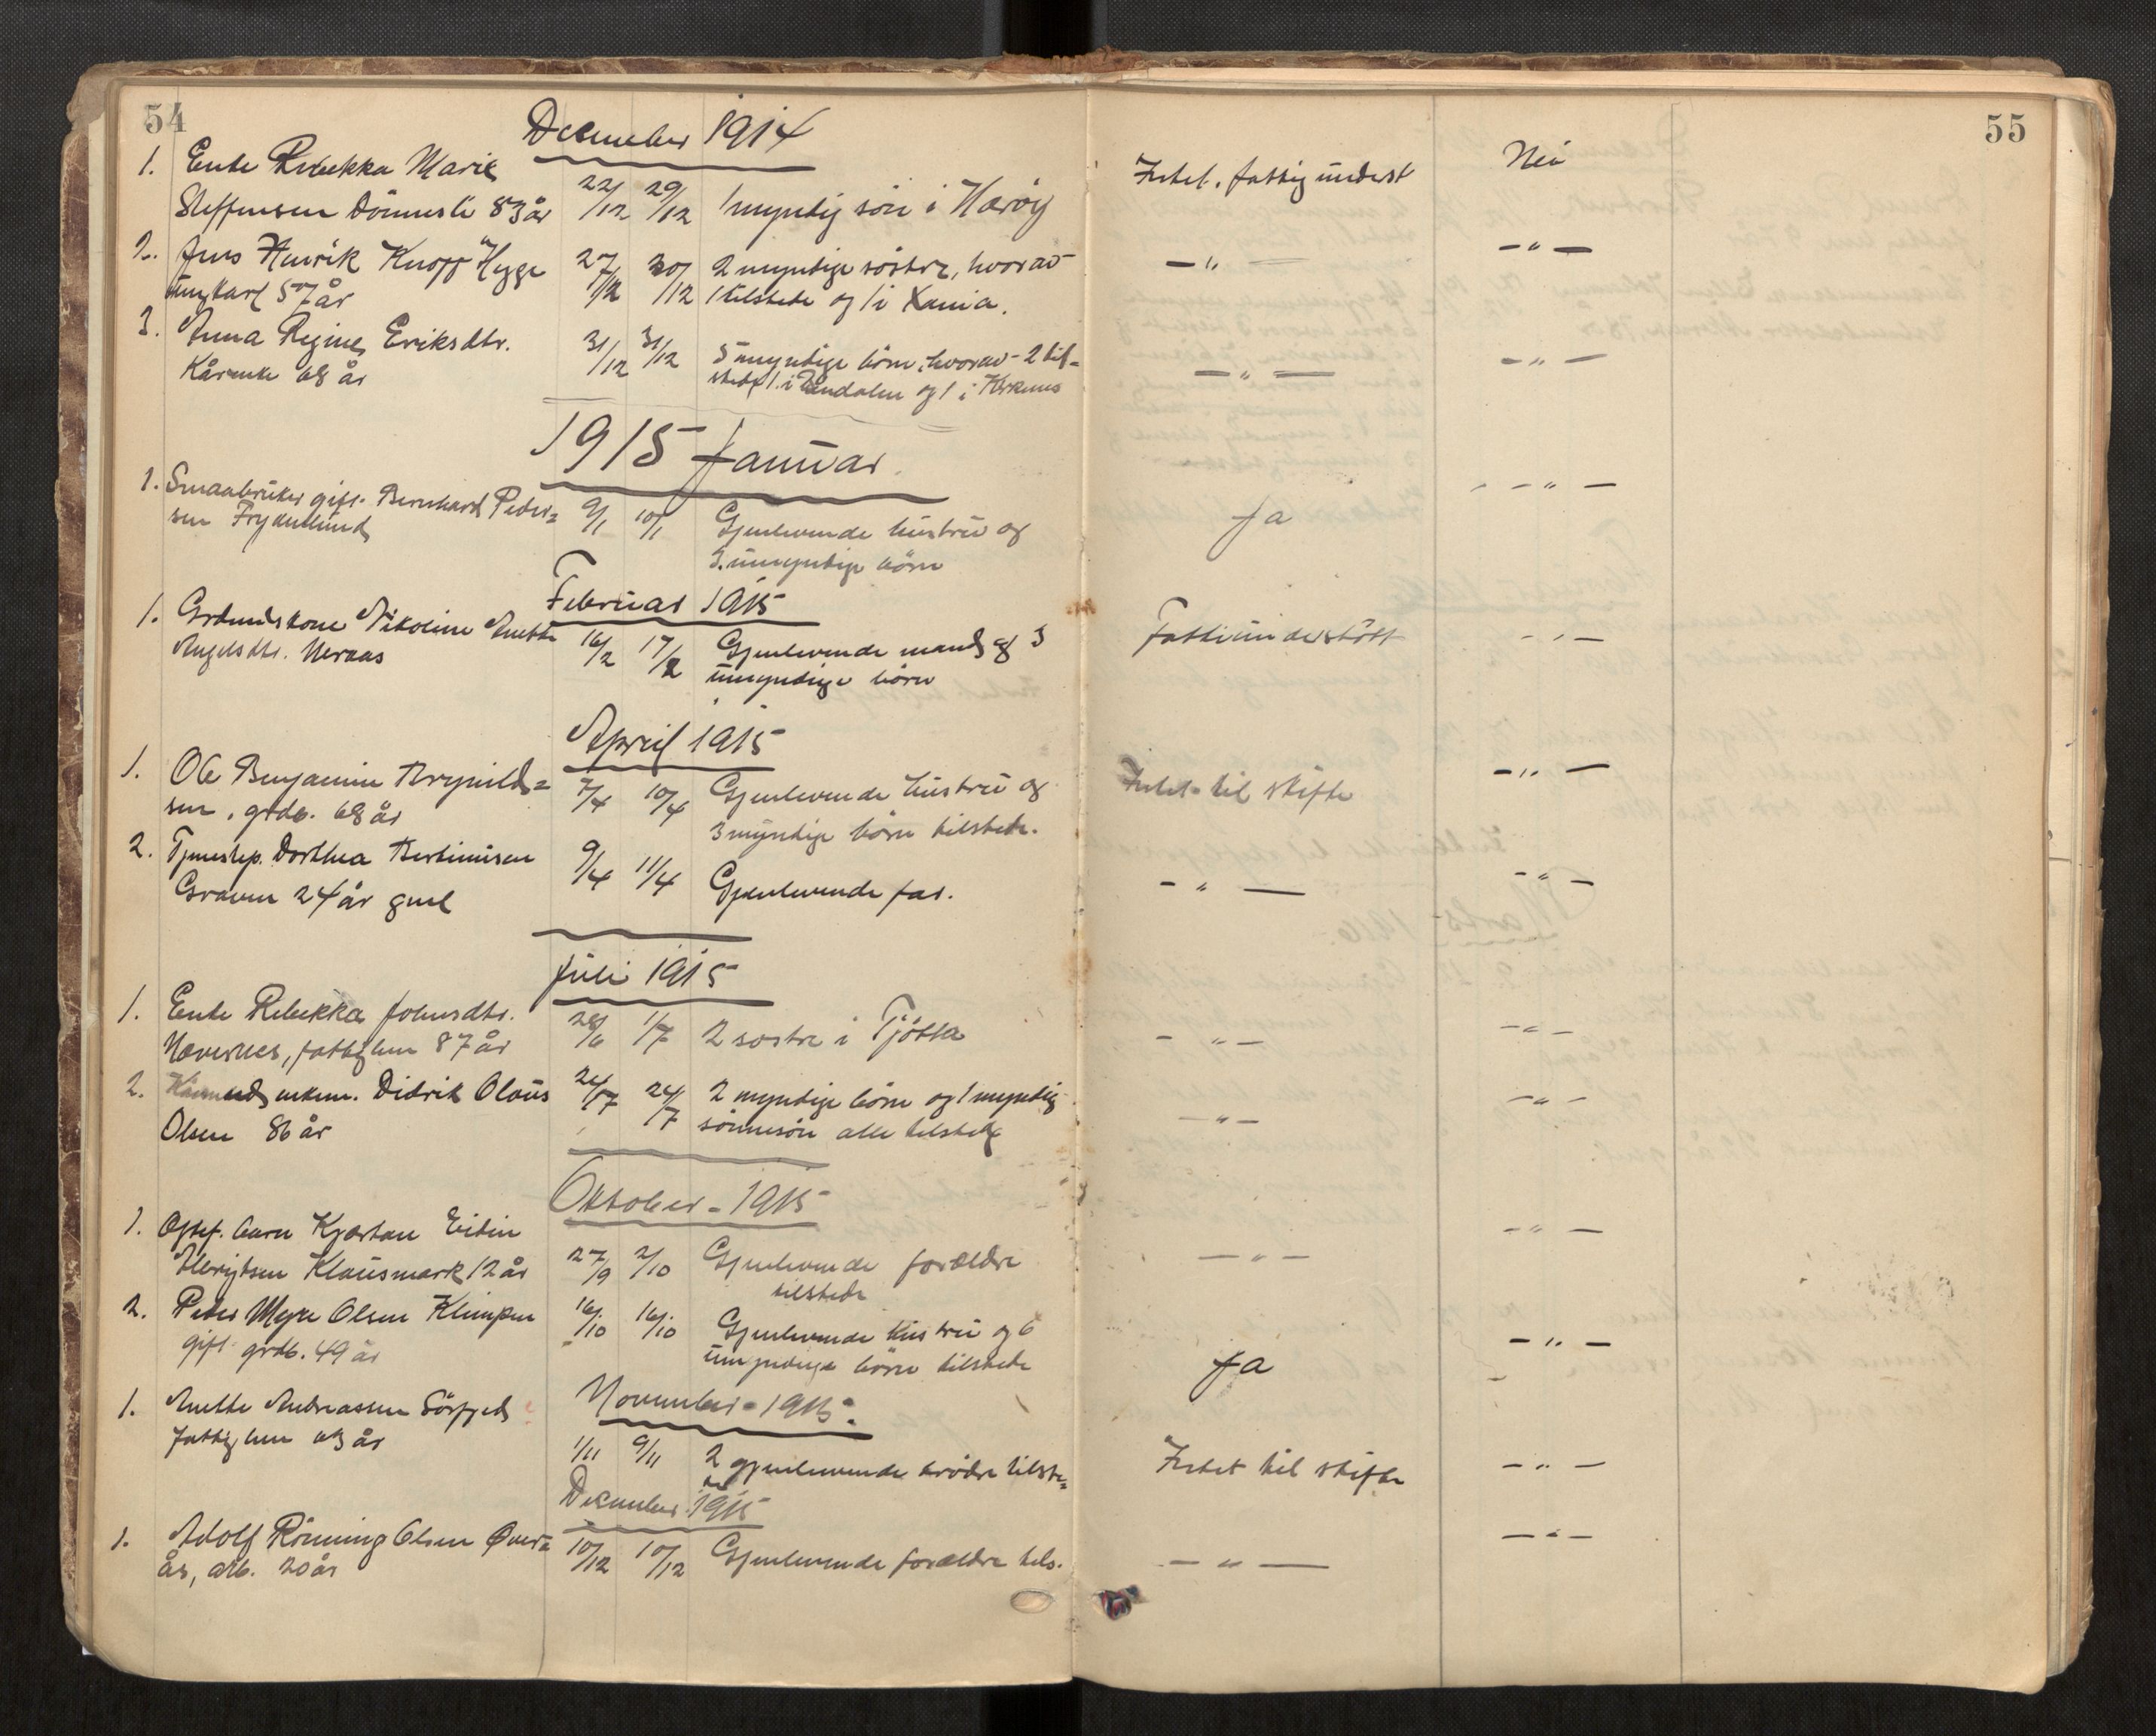 54
December 1914
1. Enke Rebekka Marie
Steffensen Dönnesli 83 år 22/12 29/12 1 myndig sön i Herøy
Intet. fattigunderst Nei
2. Jens Henrik Knoff Hygge 27/12 30/12 2 myndige söstre, hvorav
ungkarl 57 år 1 tilstede og 1 i Xania.
— " — — " —
3. Anna Regine Eriksdtr. 31/12 31/12 5 myndige börn, hvorav 2 til-
68 år stede 1 i og 1 i Kirkenes
— " — — " —
1915 Januar
1. Smaabruker gift. Bernhard Peder=
sen Frydenlund 9/1 10/1 Gjenlevende hustru og
3. umyndige börn
Ja — " —
Februar 1915
1. Grdmandskone Nikoline Anette
Angelsdtr. Neraas 16/2 17/2 Gjenlevende mand og 3
umyndige börn
Fattiunderstött — " —
April 1915
1. Ole Benjamin Brynild=
sen, grdb. 68 år 7/4 10/4 Gjenlevende hustru og
3 myndige börn tilstede.
Intet til skifte — " —
2. Tjenestep. Dorthea Bertinusen
Graven 24 år gml 9/4 11/4 Gjenlevende far.
— " — — " —
Juli 1915
1. Enke Rebekka Johnsdtr.
fattiglem 87 år 28/6 1/7 2 sostre i Tjötta
— " — — " —
2. enkem. Didrik Olaus 24/7 24/7 2 myndige börn og 1 myndig
Olsen 86 år sönnesön alle tilstede
— " — — " —
Oktober - 1915
1. Opsf. barn Kjartan Eidin
Klausmark 12 år 27/9 2/10 Gjenlevende forældre
tilstede
— " — — " —
2. Peder Myre Olsen Klimpen 16/10 16/10 Gjenlevende hustru og 6
gift grdb. 49 år umyndige börn tilstede
Ja — " —
November - 1915.
1. Anette Andreassen Sörfjed
fattiglem 63 år 1/11 9/11 2 gjenlevende brödre tilste=
de
Intet til skifte — " —
December 1915
1. Adolf Rönning Olsen Øver=
ås, arb. 20 år 10/12 10/12 Gjenlevende forældre tils.
— " — — " —
55